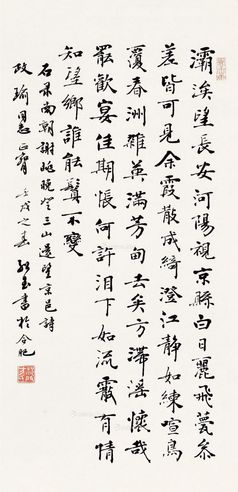 灞涘望長安河陽視京縣白日麗飛甍參
差皆可見余霞散成綺澄江靜如練喧鳥
覆春洲雜英滿芳甸去矣方滯淫懷哉
罷歡宴佳期悵何許淚下如流霰有情
知望鄉誰能鬒不變
右录南朝謝朓晚登三山還望京邑詩
政瑜同志正腕 壬戌之春 書於合肥